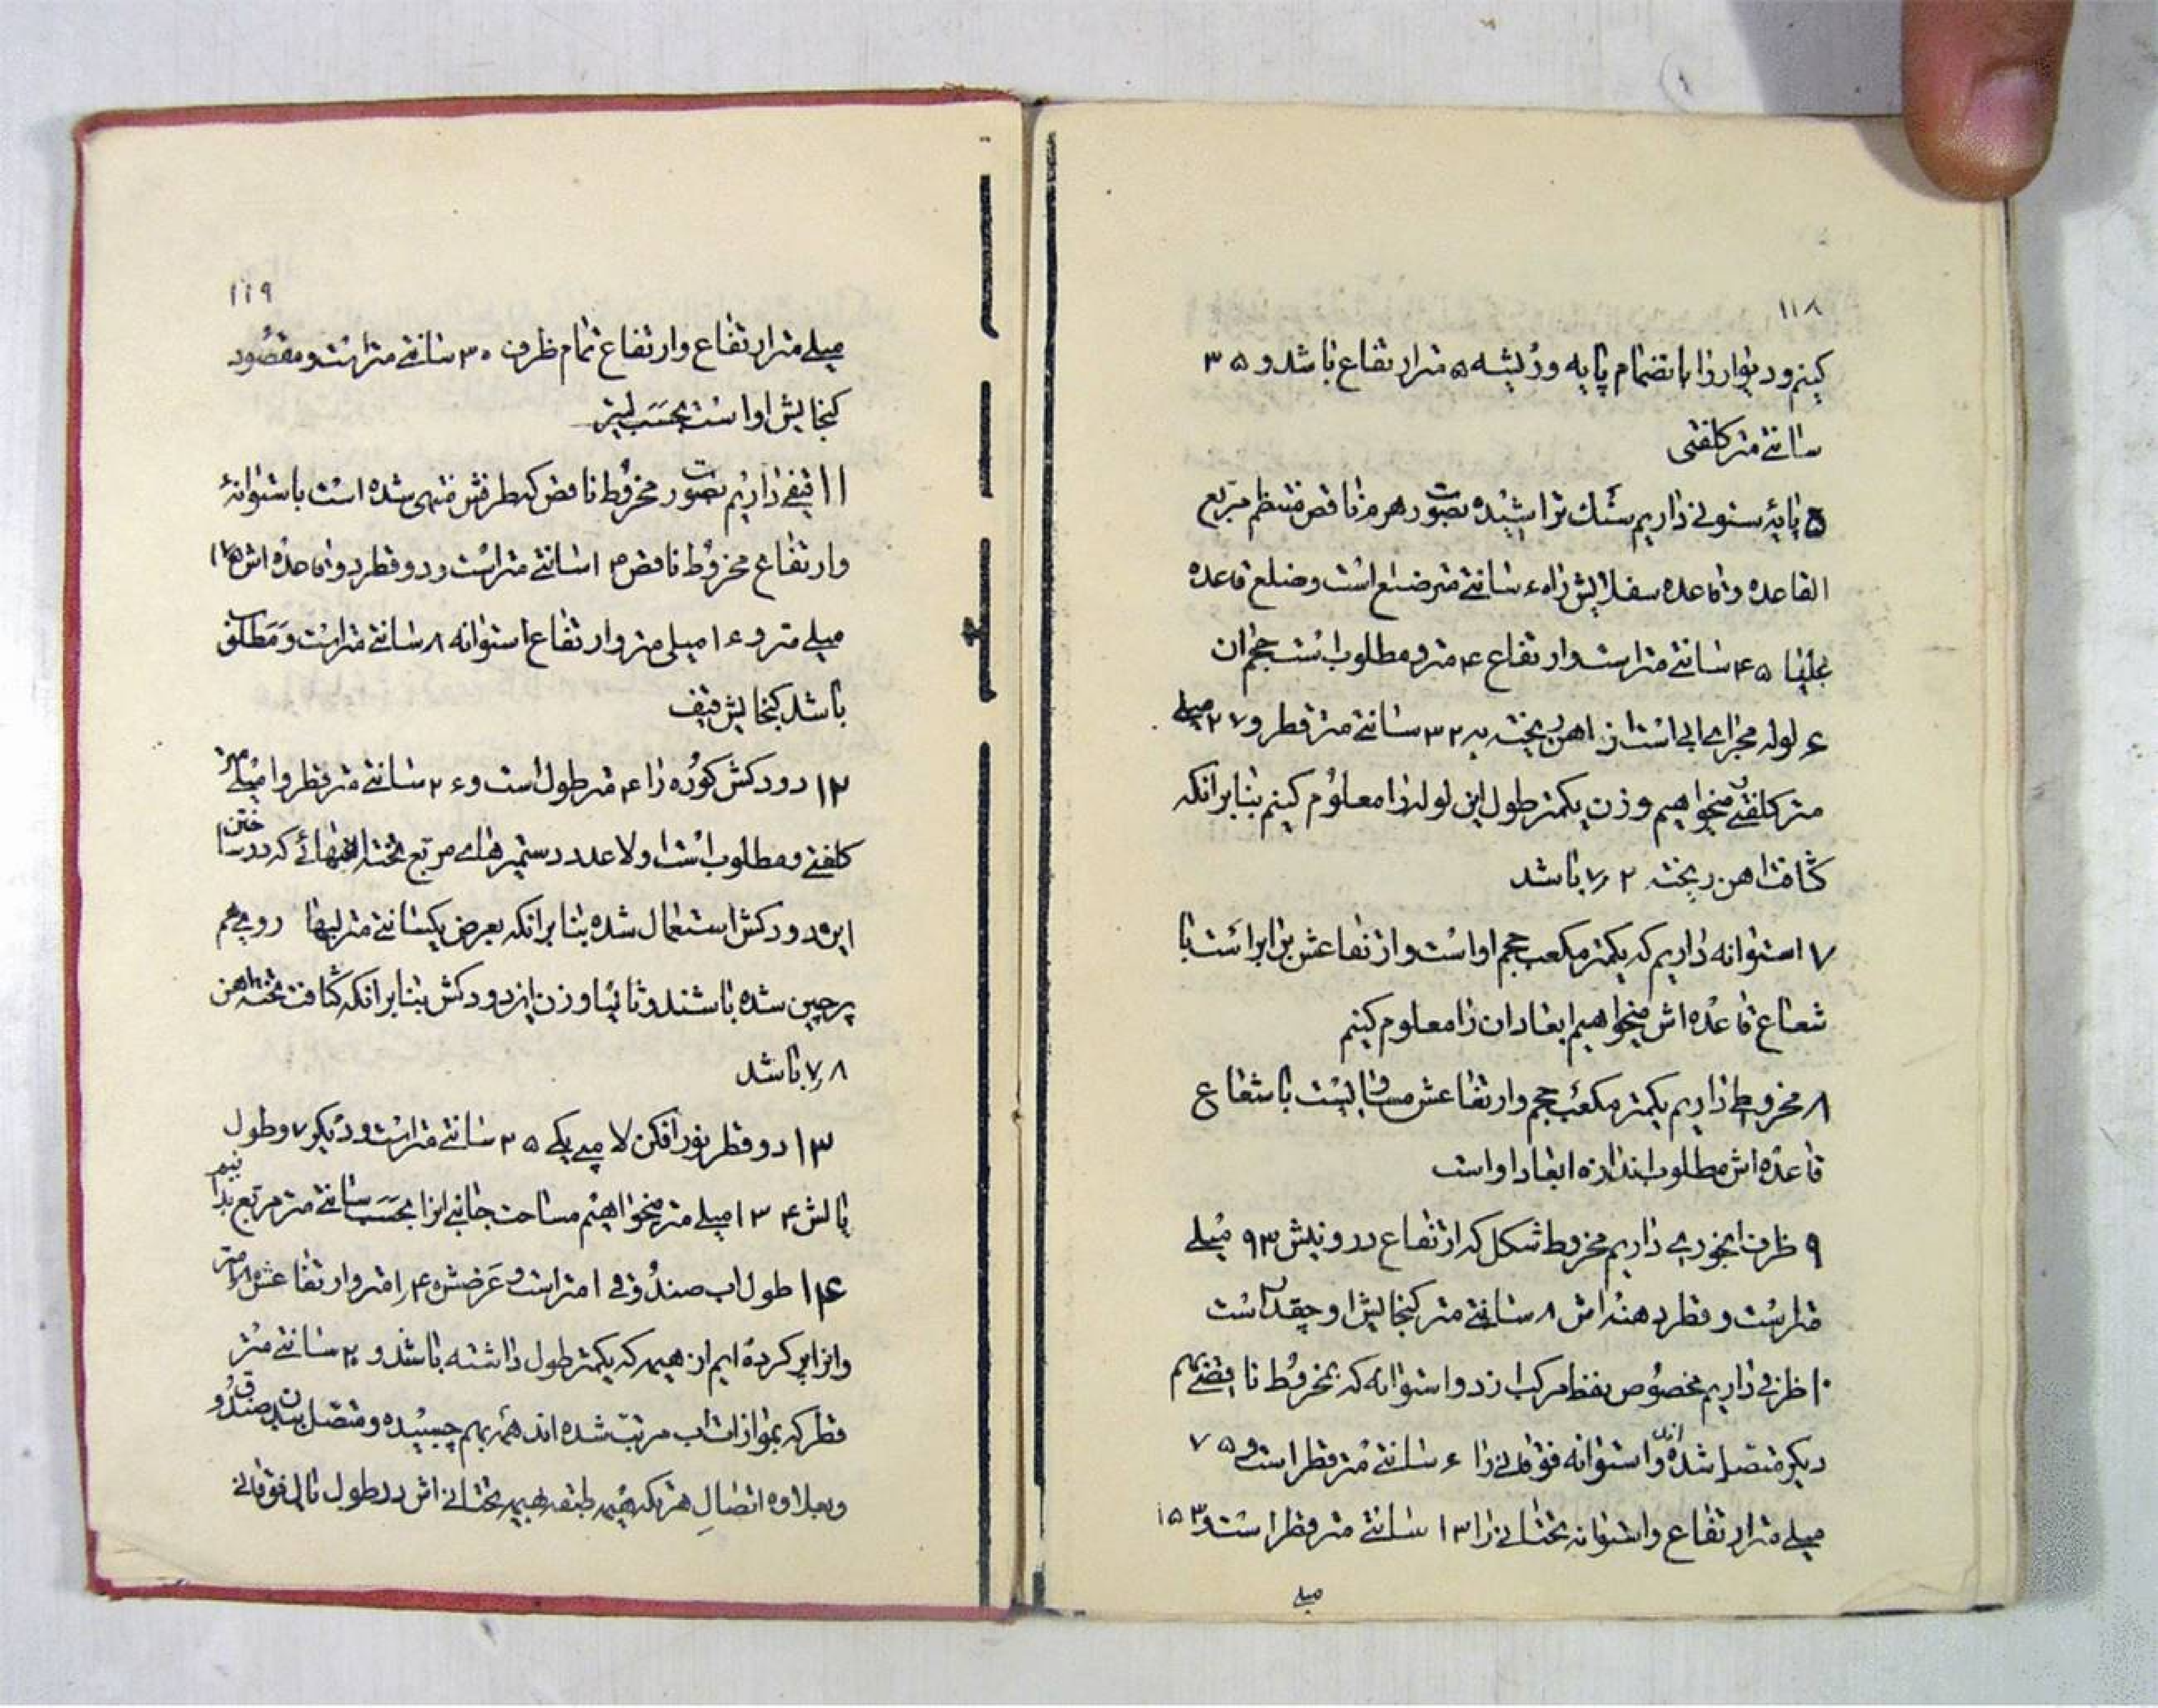 ۱۱۸
کنیم و دیوار را بانضمام پایه و ریشه ۵ متر ارتفاع باشد و ۳۵
سانتی متر کلفتی
۵ پایهٔ ستونی داریم سنک تراشیده بصورت هرم ناقص منتظم مربع
القاعده و قاعده سفلایش را ۶۰ سانتی متر ضلع است و ضلع قاعده
علیا ۴۵ سانتی متر است و ارتفاع ۴ متر و مطلوب است حجم آن
۶ لوله مجرای ابی است از اهن ریخته به ۳۲ سانتی متر قطر و ۲۷ میلی
متر کلفتی میخواهیم وزن یکمتر طول این لوله را معلوم کنیم بنابر انکه
کثافت اهن ریخته ۷٫۲ باشد
۷ استوانه داریم که یکمتر مکعب حجم او است و ارتفاعش برابر است با
شعاع قاعده اش میخواهیم ابعاد ان را معلوم کنیم
۸ مخروطی داریم یکمتر مکعب حجم و ارتفاعش مساویست با شعاع
قاعده اش مطلوب اندازه ابعاد او است
۹ ظرف ابخوری داریم مخروط شکل که ارتفاع درونیش ۹۳ میلی
متر است و قطر دهنه اش ۸ سانتی متر کنجایش او چقدر است
۱۰ ظرفی داریم مخصوص نفط مرکب از دو استوانه که بمخروط ناقصی بهم
دیکر متصل شده اند و استوانه فوقانی را ۶ سانتی متر قطر است و ۷۵
میلی متر ارتفاع و استوانه تحتانی را ۱۳ سانتی متر قطر است و ۱۵۳
میلی
۱۱۹
میلی متر ارتفاع و ارتفاع تمام ظرف ۳۰ سانتی متر است و مقصود
کنجایش او است بحسب لیتر
۱۱ قیفی داریم بصورت مخروط ناقص که طرفش منتهی شده است باستوانهٔ
و ارتفاع مخروط ناقص ۱۲ سانتی متر است و دو قطر دو قاعده اش ۱۷۵
میلی متر و ۱۶ میلی متر و ارتفاع استوانه ۸ سانتی متر است و مطلوب
باشد کنجایش قیف
۱۲ دودکش کوره را ۴ متر طول است و ۲۶ سانتی متر قطر و ۱ میلی متر
کلفتی و مطلوب است اولا عدد دسیمتر های مربع تخته اهنهائی که در ساختن
این دودکش استعمال شده بنابر انکه بعرض یکسانتی متر لبها روی هم
پرچین شده باشند و ثانیا وزن این دودکش بنابر انکه کثافت تخته اهن
۷٫۸ باشد
۱۳ دو قطر نور افکن لامپی یکی ۲۵ سانتی متر است و دیکر ۷ و طول
یالش ۱۳۴ میلی متر میخواهیم مساحت جانبی انرا بحسب سانتی متر مربع بدانیم
۱۴ طول اب صندوقی ۱ متر است و عرضش ۱٫۴ متر و ارتفاعش متر
و انرا پر کرده ایم از هیمه که یکمتر طول داشته باشد و ۲۰ سانتی متر
قطر که بموازات اب مرتب شده اند همه بهم چسبیده و متصل ببدن صندوق و
و بعلاوه اتصال هر یکه هیمه طبقه هیمه تحتانی اش در طول تالی فوقانی